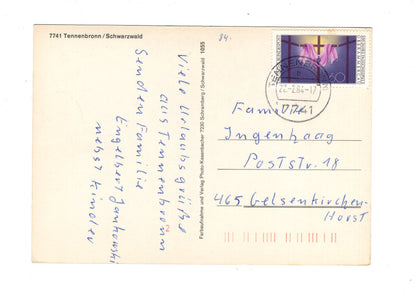 7741 Tennenbronn/Schwarzwald
84.
Viele Urlaubsgrüße
aus Tennenbronn
Senden Familie
Engelbert Jankowski
nebst Kinder
Farbaufnahme und Verlag Photo-Kesenbacher 7230 Schramberg/Schwarzwald 1055
60
22.-2.84-17
7741
Familie
Ingenhaag
Poststr. 18
465 Gelsenkirchen-
Horst